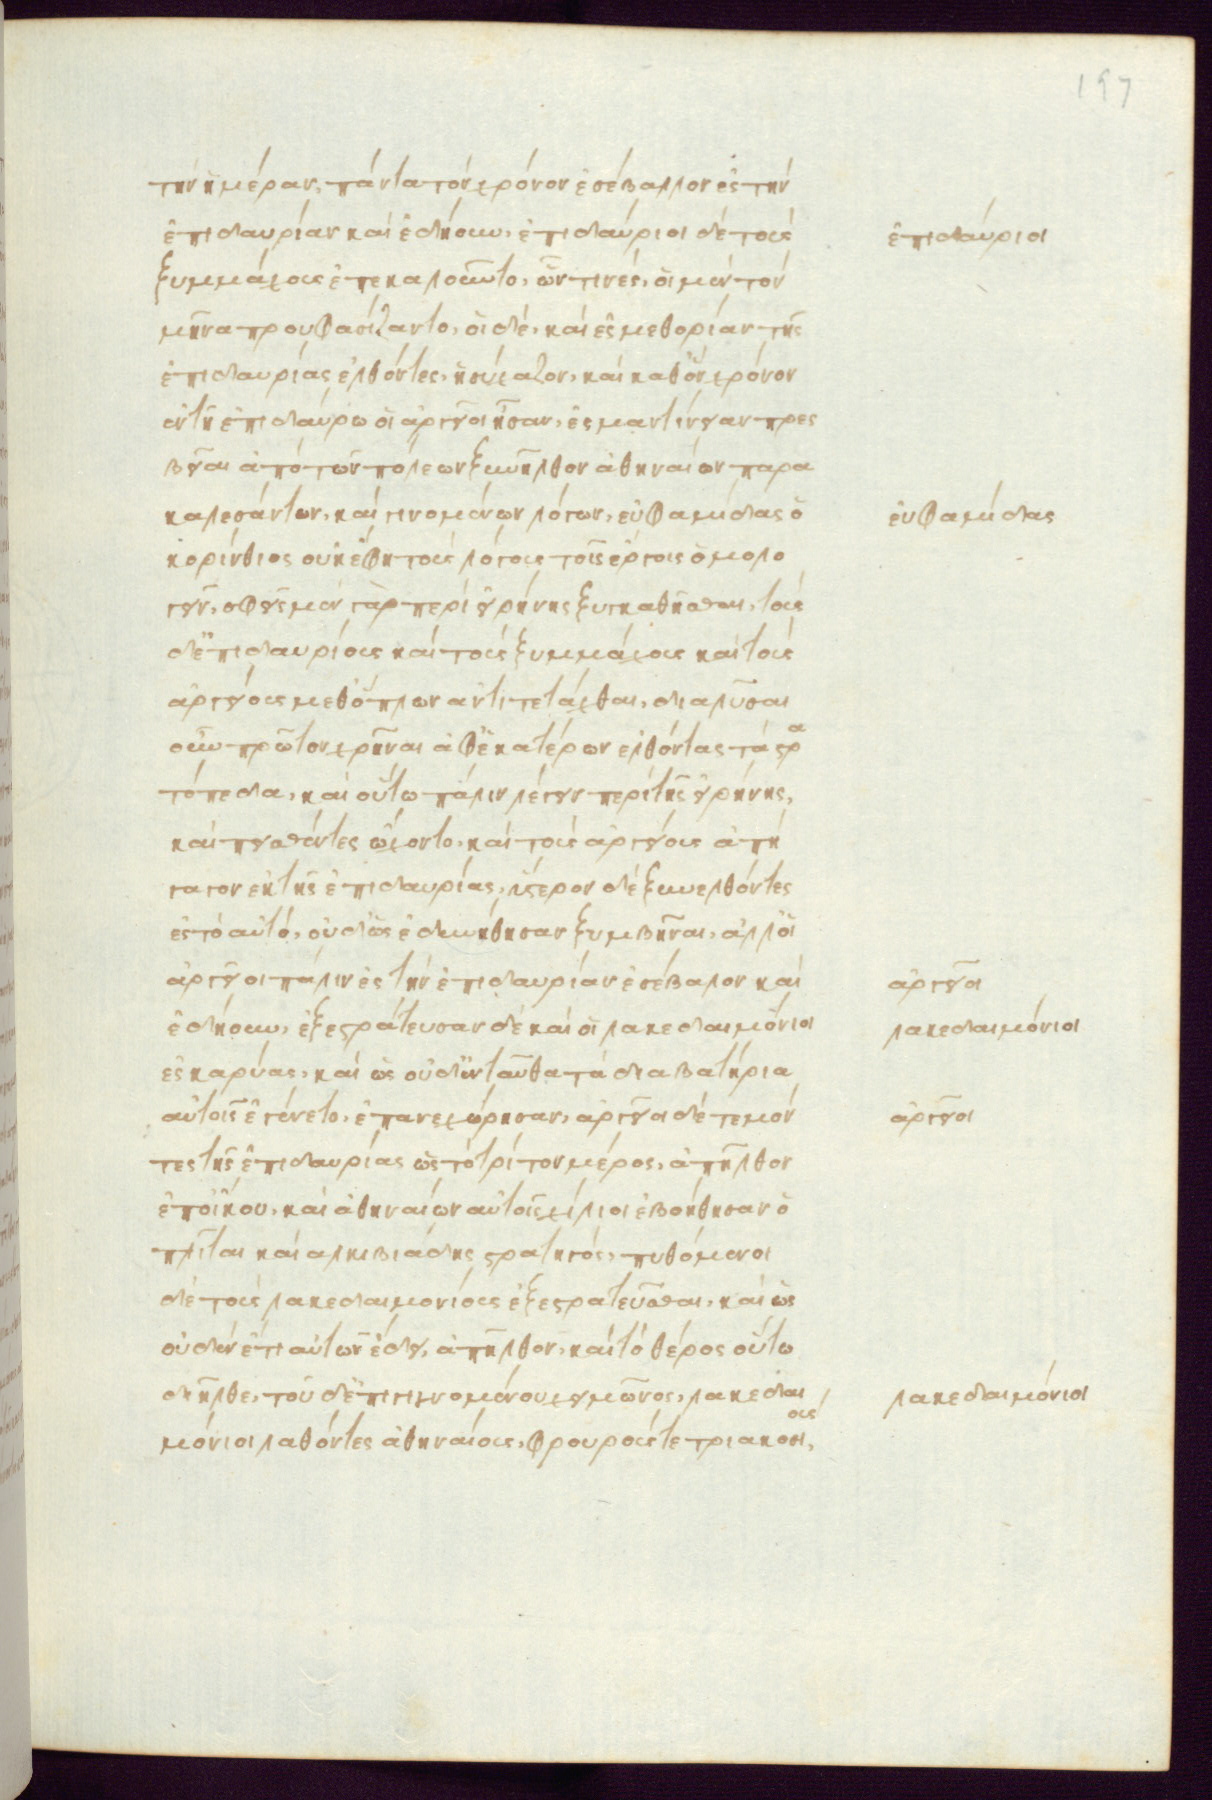 197
τὴν ἡμέραν, πάντα τὸν χρόνον ἐσέβαλλον ἐς τὴν
ἐπιδαυρίαν καὶ ἐδῄουν, ἐπιδαύριοι δὲ τοὺς
ἐπιδαύριοι
ξυμμάχους ἐπεκαλοῦντο, ὧν τινὲς, οἱ μὲν τὸν
μῆνα προυφασίζαντο, οἱ δὲ, καὶ ἐς μεθορίαν τῆς
ἐπιδαυρίας ἐλθόντες, ἡσύχαζον, καὶ καθ' ὃν χρόνον
ἐν τῇ ἐπιδαύρω οἱ ἀργεῖοι ἦσαν, ἐς μαντίνειαν πρες
βεῖαι ἀπὸ τῶν πόλεων ξυνῆλθον ἀθηναίων παρα
καλεσάντων, καὶ γινομένων λόγων, εὐφαμίδας ὁ
εὐφαμίδας
κορίνθιος οὐκ ἔφη τοὺς λόγους τοῖς ἔργοις ὁμολο
γεῖν, σφεῖς μὲν γὰρ περὶ εἰρήνης ξυγκαθῆσθαι, τοὺς
δ' ἐπιδαυρίους καὶ τοὺς ξυμμάχους καὶ τοὺς
ἀργείους μεθ' ὅπλων ἀντιτετάχθαι, διαλῦσαι
οὖν πρῶτον χρῆναι ἀφ' ἑκατέρων ἐλθόντας τὰ στρα
τόπεδα, καὶ οὕτω πάλιν λέγειν περὶ τῆς εἰρήνης,
καὶ πεισθέντες ᾤχοντο, καὶ τοὺς ἀργείους ἀπή
γαγον ἐκ τῆς ἐπιδαυρίας, ὕστερον δὲ ξυνελθόντες
ἐς τὸ αὐτό, οὐδ' ὣς ἐδυνήθησαν ξυμβῆναι, ἀλλ' οἱ
ἀργεῖοι πάλιν ἐς τὴν ἐπιδαυρίαν ἐσέβαλον καὶ
ἀργεῖοι
ἐδῄουν, ἐξεστράτευσαν δὲ καὶ οἱ λακεδαιμόνιοι
λακεδαιμόνιοι
ἐς καρύας, καὶ ὡς οὐδ' ἐνταῦθα τὰ διαβατήρια
αὐτοῖς ἐγένετο, ἐπανεχώρησαν, ἀργεῖοι δὲ τεμόν
ἀργεῖοι
τες τῆς ἐπιδαυρίας ὡς τὸ τρίτον μέρος, ἀπῆλθον
ἐπ' οἴκου, καὶ ἀθηναίων αὐτοῖς χίλιοι ἐβοήθησαν ὁ
πλῖται καὶ ἀλκιβιάδης στρατηγός, πυθόμενοι
δὲ τοὺς λακεδαιμονίους ἐξεστρατεῦσθαι, καὶ ὡς
οὐδὲν ἔτι αὐτῶν ἔδει, ἀπῆλθον, καὶ τὸ θέρος οὕτω
διῆλθε, τοῦ δ' ἐπιγιγνομένου χειμῶνος, λακεδαι
λακεδαιμόνιοι
μόνιοι λαθόντες ἀθηναίους, φρουρούς τε τριακοσίους,